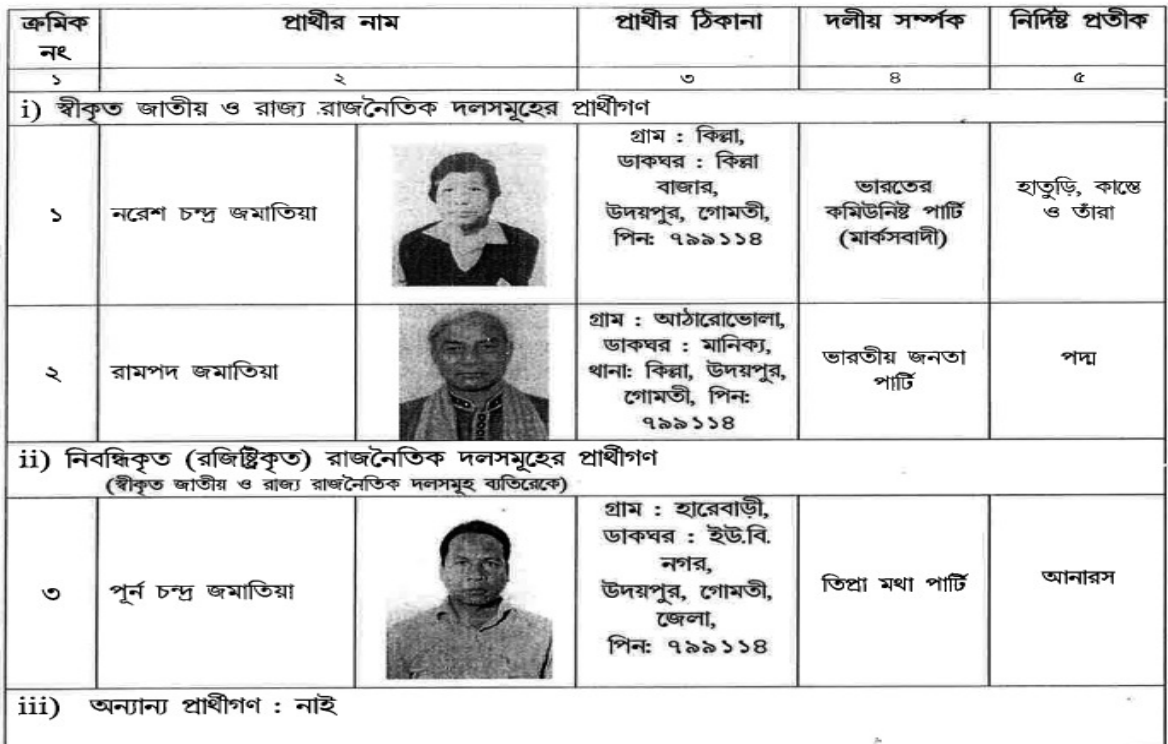 ক্রমিক নং
প্রার্থীর নাম
প্রার্থীর ঠিকানা
দলীয় সর্ম্পক
নির্দিষ্ট প্রতীক
১
২
৩
৪
৫
i) স্বীকৃত জাতীয় ও রাজ্য রাজনৈতিক দলসমূহের প্রার্থীগণ
১
নরেশ চন্দ্র জমাতিয়া
গ্রাম : কিল্লা,
ডাকঘর : কিল্লা
বাজার,
উদয়পুর, গোমতী,
পিন: ৭৯৯১১৪
ভারতের
কমিউনিষ্ট পার্টি
(মার্কসবাদী)
হাতুড়ি, কাস্তে
ও তাঁরা
২
রামপদ জমাতিয়া
গ্রাম : আঠারোভোলা,
ডাকঘর : মানিক্য,
থানা: কিল্লা, উদয়পুর,
গোমতী, পিন:
৭৯৯১১৪
ভারতীয় জনতা
পার্টি
পদ্ম
ii) নিবন্ধিকৃত (রজিষ্ট্রিকৃত) রাজনৈতিক দলসমূহের প্রার্থীগণ
(স্বীকৃত জাতীয় ও রাজ্য রাজনৈতিক দলসমূহ ব্যতিরেকে)
৩
পূর্ন চন্দ্র জমাতিয়া
গ্রাম : হারেবাড়ী,
ডাকঘর : ইউ.বি.
নগর,
উদয়পুর, গোমতী,
জেলা,
পিন: ৭৯৯১১৪
তিপ্রা মথা পার্টি
আনারস
iii) অন্যান্য প্রার্থীগণ : নাই